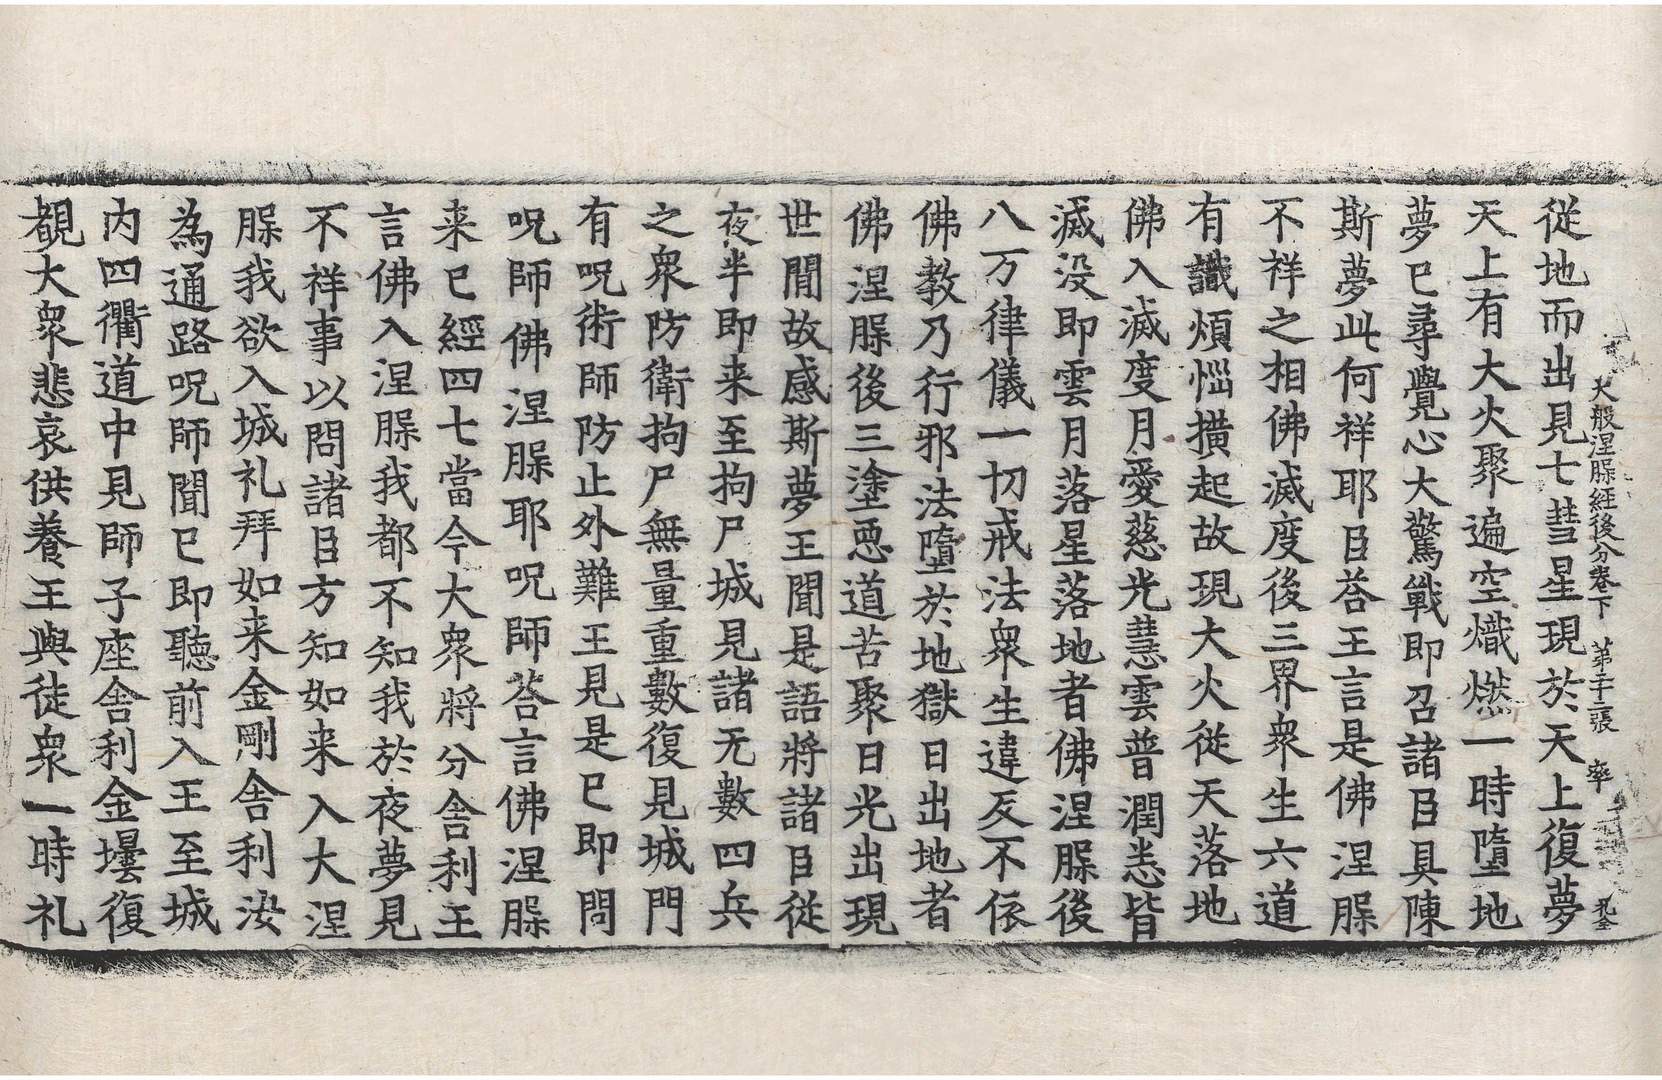 大般涅脲經後分卷下 第二十三張 率
從地而出見七彗星現於天上復夢
天上有大火聚遍空熾燃一時墮地
夢已尋覺心大驚戰即召諸臣具陳
斯夢此何祥耶臣荅王言是佛涅脲
不祥之相佛滅度後三界衆生六道
有識煩惱撗起故現大火從天落地
佛入滅度月愛慈光慧雲普潤悉皆
滅没即雲月落星落地者佛涅脲後
八万律儀一切戒法衆生違反不依
佛教乃行邪法墮於地獄日出地者
佛涅脲後三塗惡道苦聚日光出現
世間故感斯夢王聞是語將諸臣從
夜半即来至拘尸城見諸无數四兵
之衆防衛拘尸無量重數復見城門
有呪術師防止外難王見是已即問
呪師佛涅脲耶呪師荅言佛涅脲
来已經四七當今大衆將分舍利王
言佛入涅脲我都不知我於夜夢見
不祥事以問諸臣方知如来入大涅
脲我欲入城礼拜如来金剛舍利汝
為通路呪師聞已即聽前入王至城
内四衢道中見師子座舍利金壜復
覩大衆悲哀供養王與徒衆一時礼